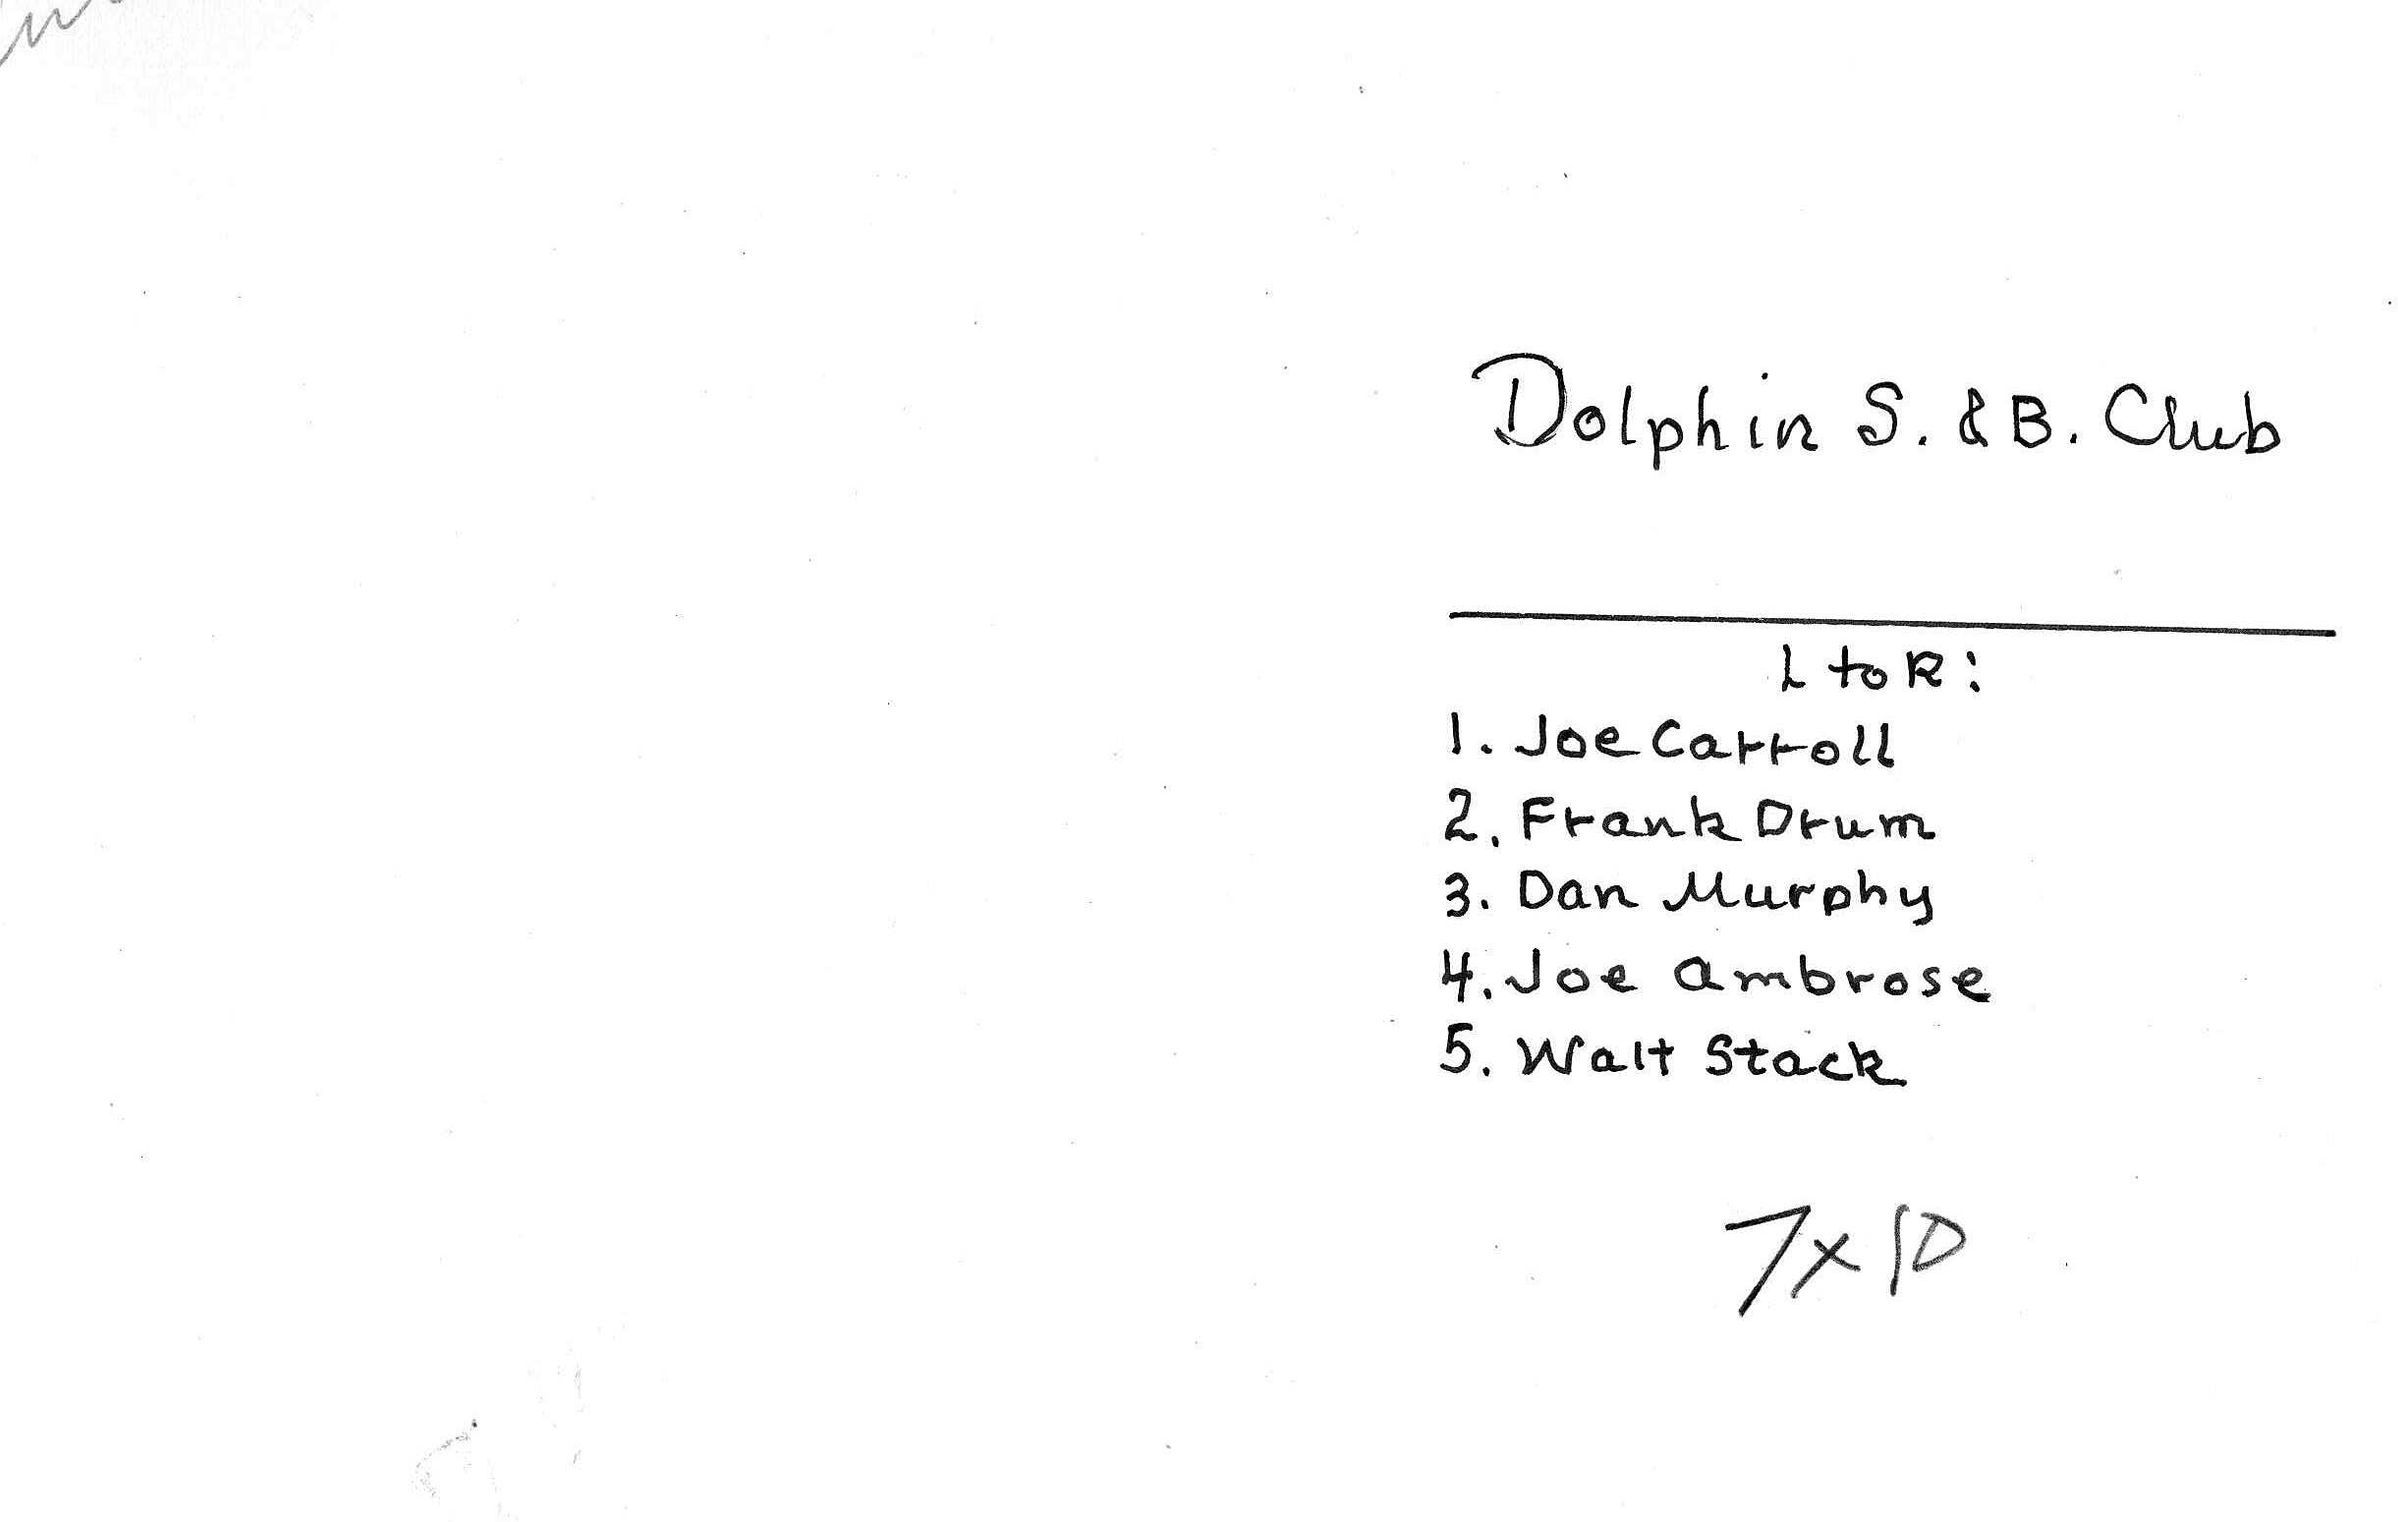 Dolphin S. & B. Club
L to R:
1. Joe Carroll
2. Frank Drum
3. Dan Murphy
4. Joe Ambrose
5. Walt Stack
7x10